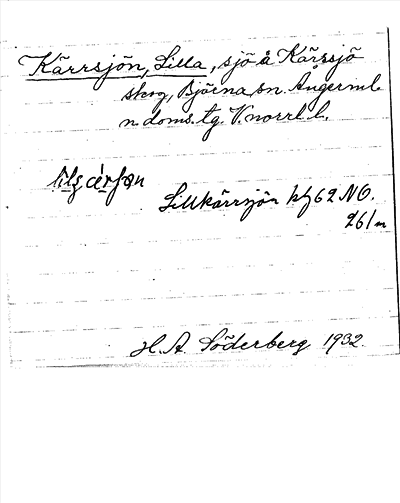 Kärrsjön, Lilla, sjö å Kärrsjö
skog, Björna sn. Ångerml.
n. doms. tg. V.norrl. l.
Lillkärrsjön kbl 62 NO.
261 m
H. A. Söderberg 1932.